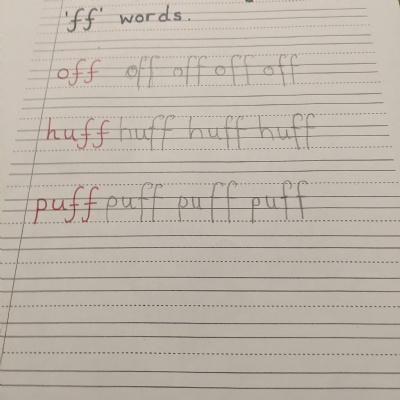 'ff' words.
off off off off off
huff huff huff huff
puff puff puff puff